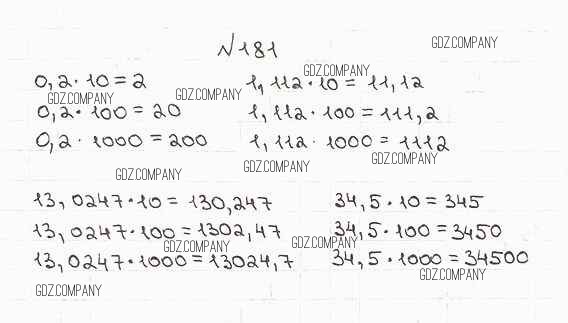 №181
GDZ.COMPANY
0,2·10=2 1,112·10=11,12
GDZ.COMPANY GDZ.COMPANY GDZ.COMPANY
0,2·100=20 1,112·100=111,2
0,2·1000=200 1,112·1000=1112
GDZ.COMPANY GDZ.COMPANY GDZ.COMPANY
13,0247·10=130,247 34,5·10=345
13,0247·100=1302,47 34,5·100=3450
GDZ.COMPANY GDZ.COMPANY
13,0247·1000=13024,7 34,5·1000=34500
GDZ.COMPANY GDZ.COMPANY